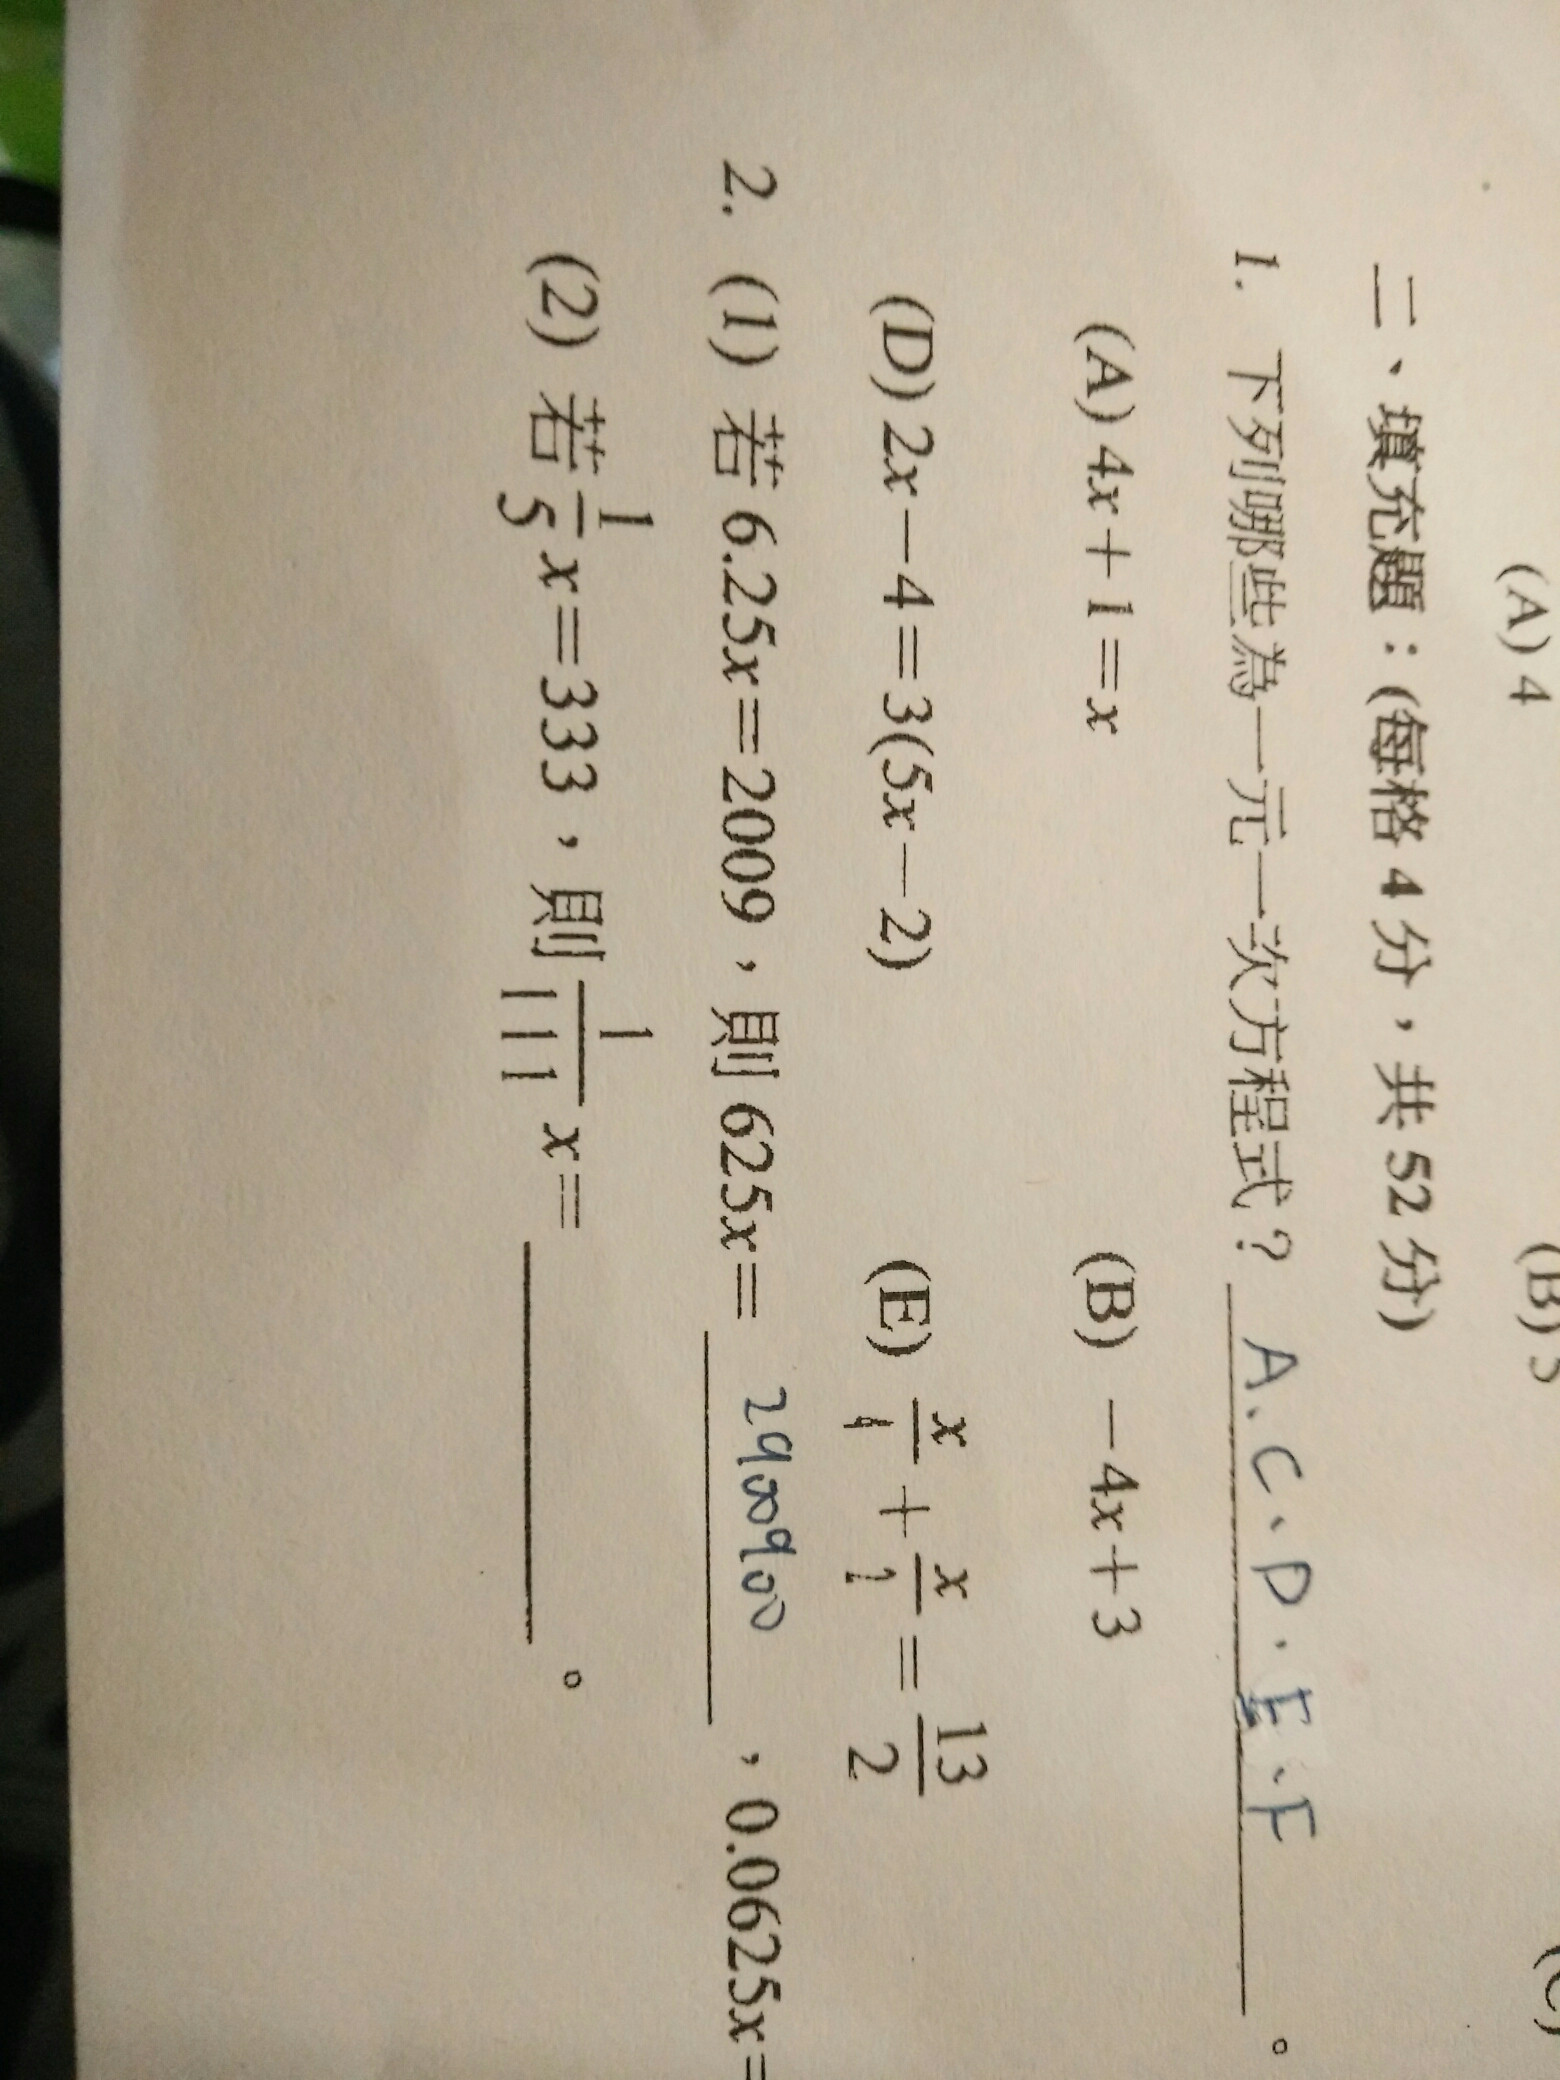 (A) 4 (B) 5
二、填充題：(每格 4 分，共 52 分)
1. 下列哪些為一元一次方程式？ A、C、D、E、F 。
(A) 4x＋1＝x (B) －4x＋3
(D) 2x－4＝3(5x－2) (E) x/4＋x/2＝13/2
2. (1) 若 6.25x＝2009，則 625x＝ 200900 ，0.0625x＝
(2) 若 1/5 x＝333，則 1/111 x＝ 。